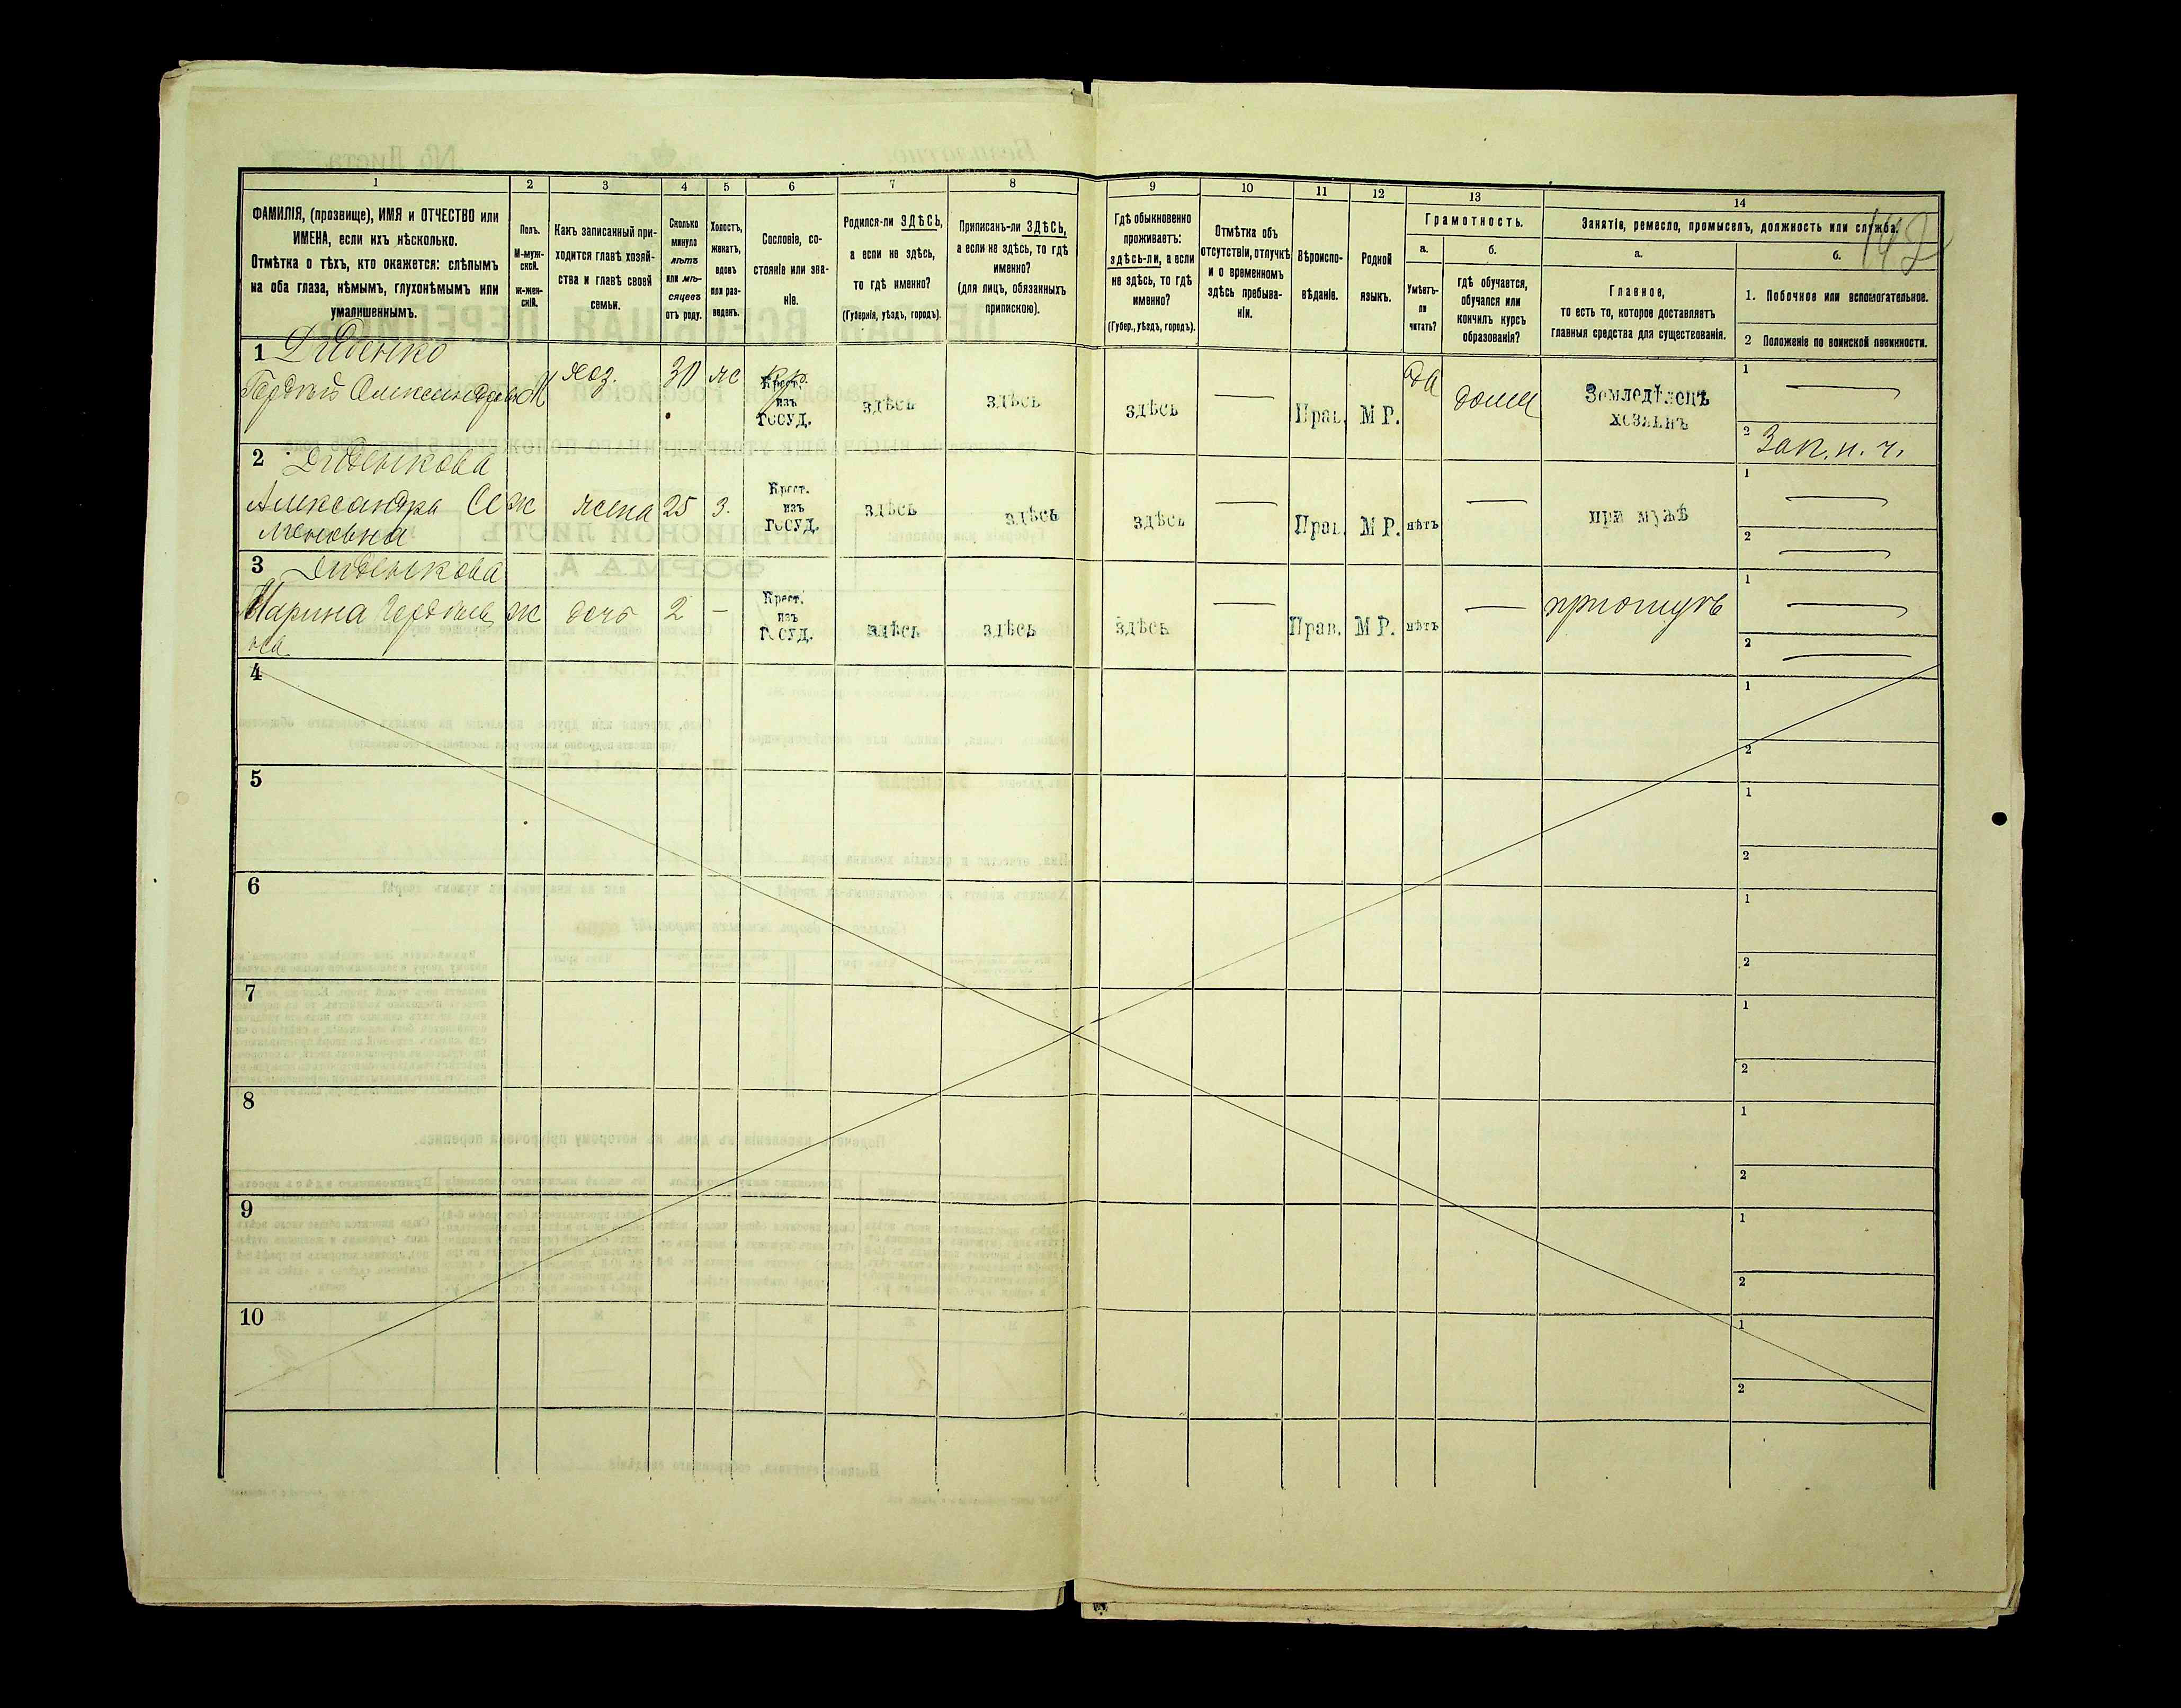 1 2 3 4 5 6 7 8 9 10 11 12 13 14
ФАМИЛІЯ, (прозвище), ИМЯ и ОТЧЕСТВО или
ИМЕНА, если ихъ нѣсколько.
Отмѣтка о тѣхъ, кто окажется: слѣпымъ
на оба глаза, нѣмымъ, глухонѣмымъ или
умалишеннымъ.
Полъ.
М-муж-
ской.
Ж-жен-
скій.
Какъ записанный при-
ходится главѣ хозяй-
ства и главѣ своей
семьи.
Сколько
минуло
лѣтъ
или мѣ-
сяцевъ
отъ роду.
Холостъ,
женатъ,
вдовъ
или раз-
веденъ.
Сословіе, со-
стояніе или зва-
ніе.
Родился-ли ЗДѢСЬ,
а если не здѣсь,
то гдѣ именно?
(Губернія, уѣздъ, городъ).
Приписанъ-ли ЗДѢСЬ,
а если не здѣсь, то гдѣ
именно?
(для лицъ, обязанныхъ
припискою).
Гдѣ обыкновенно
проживаетъ:
здѣсь-ли, а если
не здѣсь, то гдѣ
именно?
(Губер., уѣздъ, городъ).
Отмѣтка объ
отсутствіи, отлучкѣ
и о временномъ
здѣсь пребыва-
ніи.
Вѣроиспо-
вѣданіе.
Родной
языкъ.
Грамотность.
а. б.
Умѣетъ-
ли
читать?
гдѣ обучается,
обучался или
кончилъ курсъ
образованія?
Занятіе, ремесло, промыселъ, должность или служба.
а. б.
Главное,
то есть то, которое доставляетъ
главныя средства для существованія.
1. Побочное или вспомогательное.
2 Положеніе по воинской повинности.
142
1 Диденко
Александров М хоз. 30 же Крест.
изъ
ГОСУД. здѣсь здѣсь здѣсь — Прав. М Р. да дома Земледѣлецъ
хозяинъ
1 —
2 Зап. н. ч.
2 Диденкова
Александра Се
меновна Ж жена 25 з. Крест.
изъ
ГОСУД. здѣсь здѣсь здѣсь — Прав. М Р. нѣтъ — при мужѣ
1 —
2 —
3 Диденкова
Марина
Ж дочь 2 — Крест.
изъ
ГОСУД. здѣсь здѣсь здѣсь — Прав. М Р. нѣтъ — при отцѣ
1 —
2 —
4 1
2
5 1
2
6 1
2
7 1
2
8 1
2
9 1
2
10 1
2